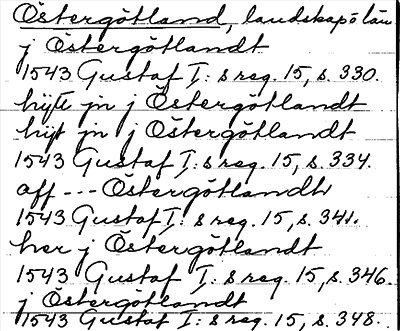 Östergötland, landskap o län
j Östergötlandt
1543 Gustaf I: s reg. 15, s. 330.
hijt jn j Östergötlandt
hijt jn j Östergötlandt
1543 Gustaf I: s reg. 15, s. 334.
aff --- Östergötlandh
1543 Gustaf I: s reg. 15, s. 341.
her j Östergötlandt
1543 Gustaf I: s reg. 15, s. 346.
j Östergötlandt
1543 Gustaf I: s reg. 15, s. 348.